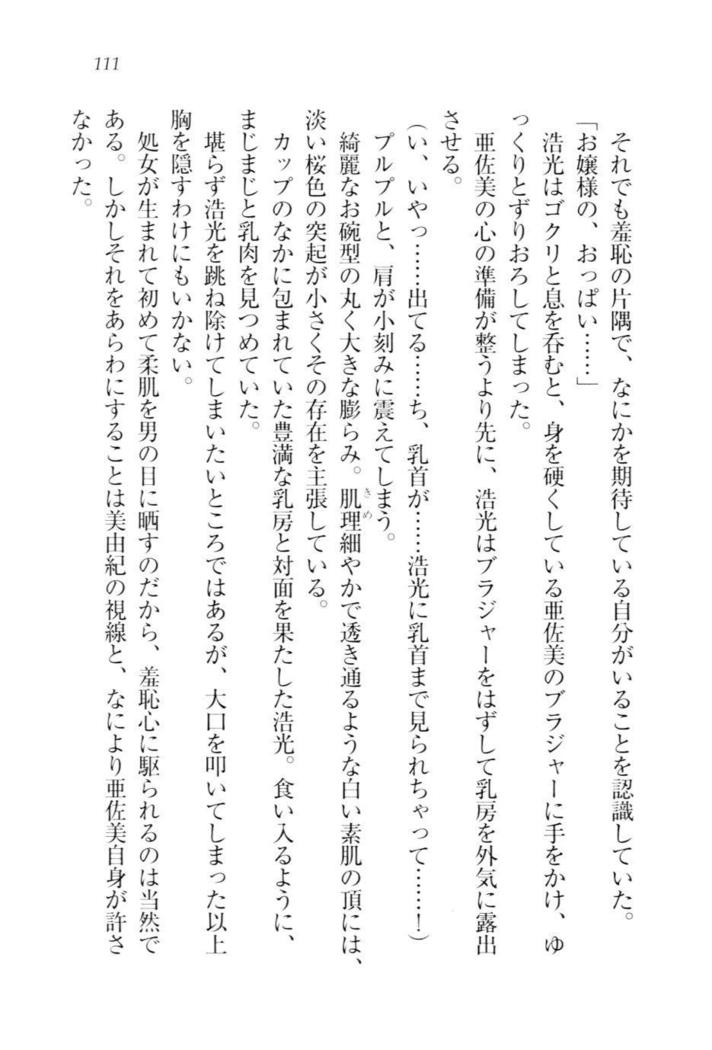 111
それでも羞恥の片隅で、なにかを期待している自分がいることを認識していた。
「お嬢様の、おっぱい……」
浩光はゴクリと息を呑むと、身を硬くしている亜佐美のブラジャーに手をかけ、ゆ
っくりとずりおろしてしまった。
亜佐美の心の準備が整うより先に、浩光はブラジャーをはずして乳房を外気に露出
させる。
(い、いやっ……出てる……ち、乳首が……浩光に乳首まで見られちゃって……!)
プルプルと、肩が小刻みに震えてしまう。
綺麗なお碗型の丸く大きな膨らみ。肌理細やかで透き通るような白い素肌の頂には、
きめ
淡い桜色の突起が小さくその存在を主張している。
カップのなかに包まれていた豊満な乳房と対面を果たした浩光。食い入るように、
まじまじと乳肉を見つめていた。
堪らず浩光を跳ね除けてしまいたいところではあるが、大口を叩いてしまった以上
胸を隠すわけにもいかない。
処女が生まれて初めて柔肌を男の目に晒すのだから、羞恥心に駆られるのは当然で
ある。しかしそれをあらわにすることは美由紀の視線と、なにより亜佐美自身が許さ
なかった。